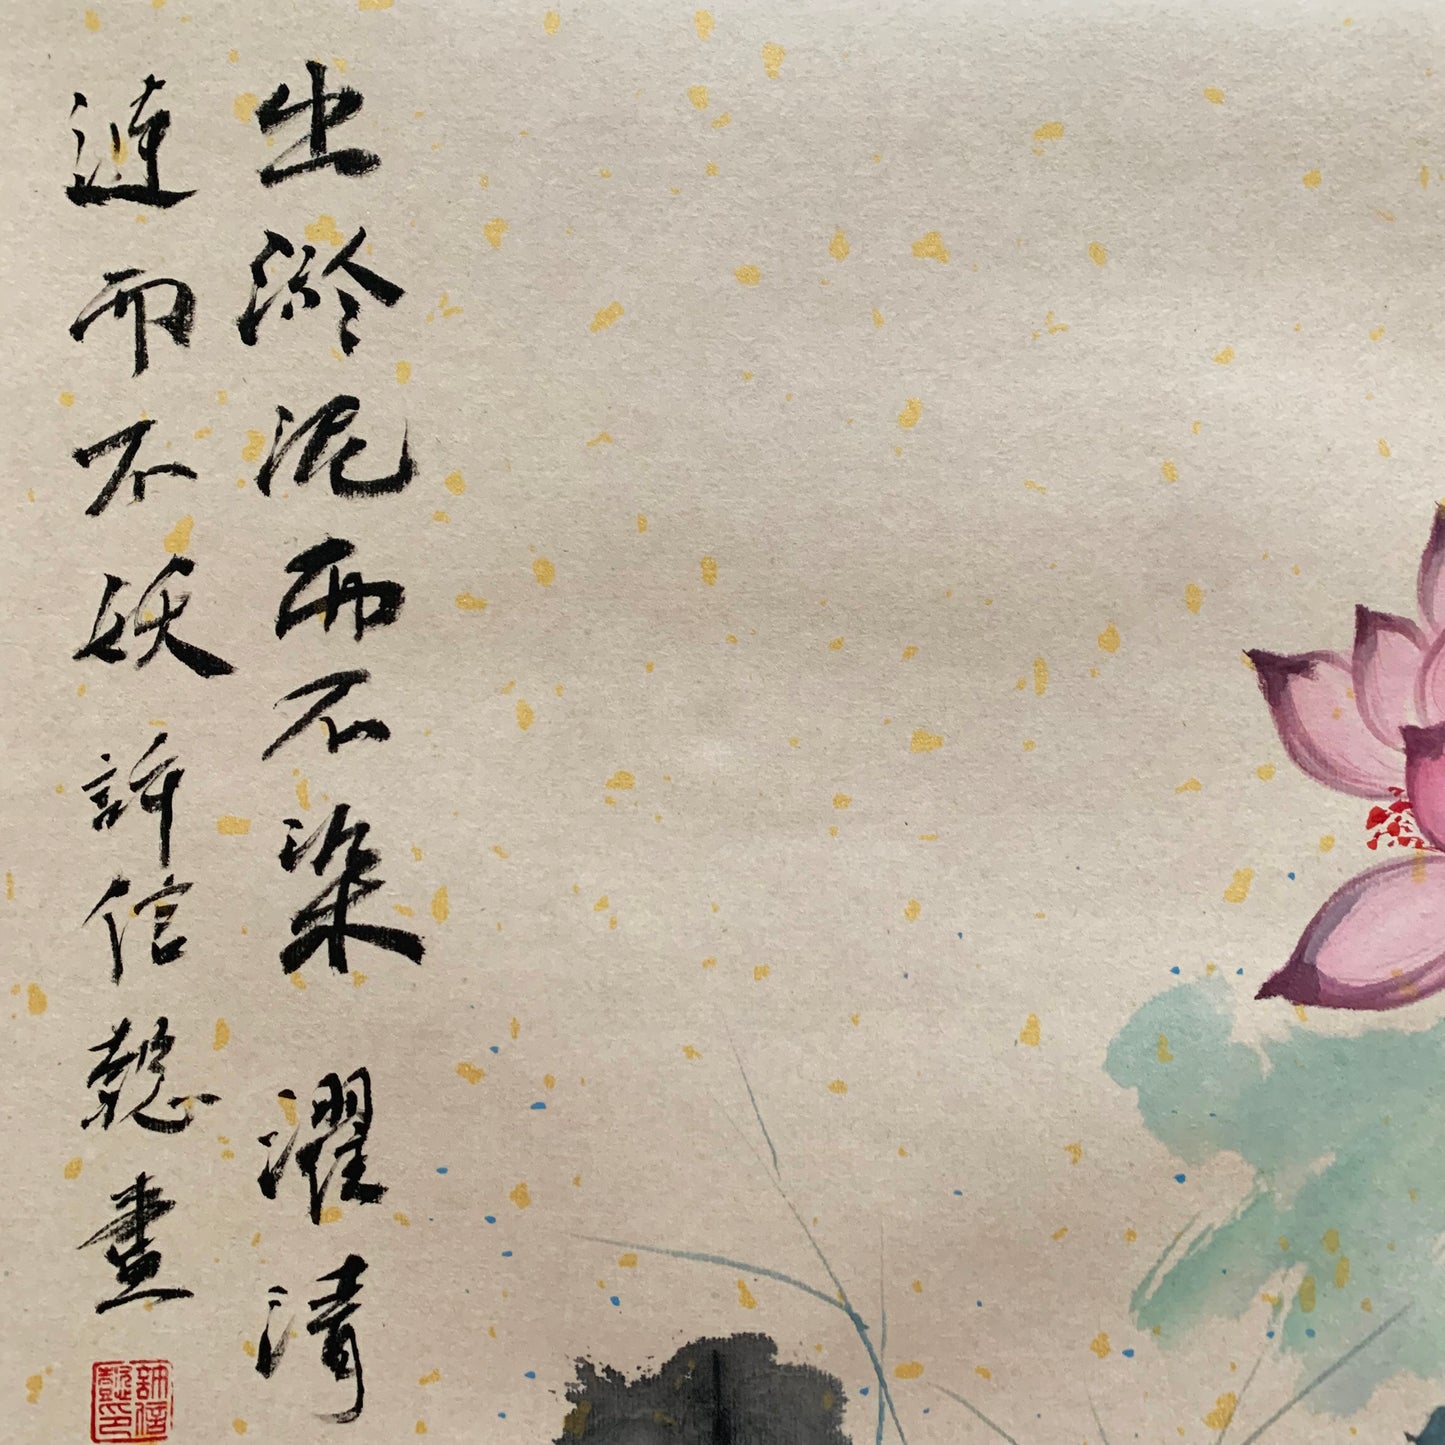 出淤泥而不染 濯清
漣而不妖 許信懿畫